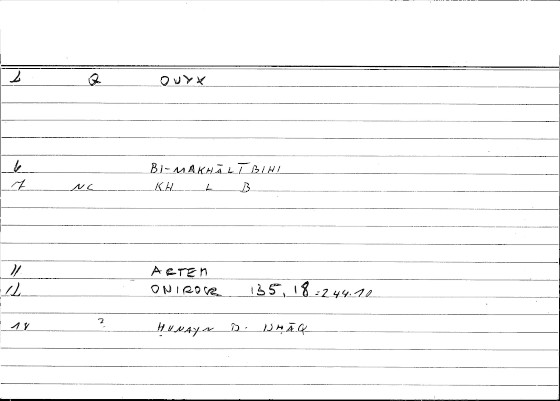 1 Q ONYX
6 BI-MAKHĀLĪBIHI
7 NC KH L B
11 ARTEM
12 ONIROCR 135, 18 = 244.10
18 ? ḤUNAYN B. ISḤĀQ